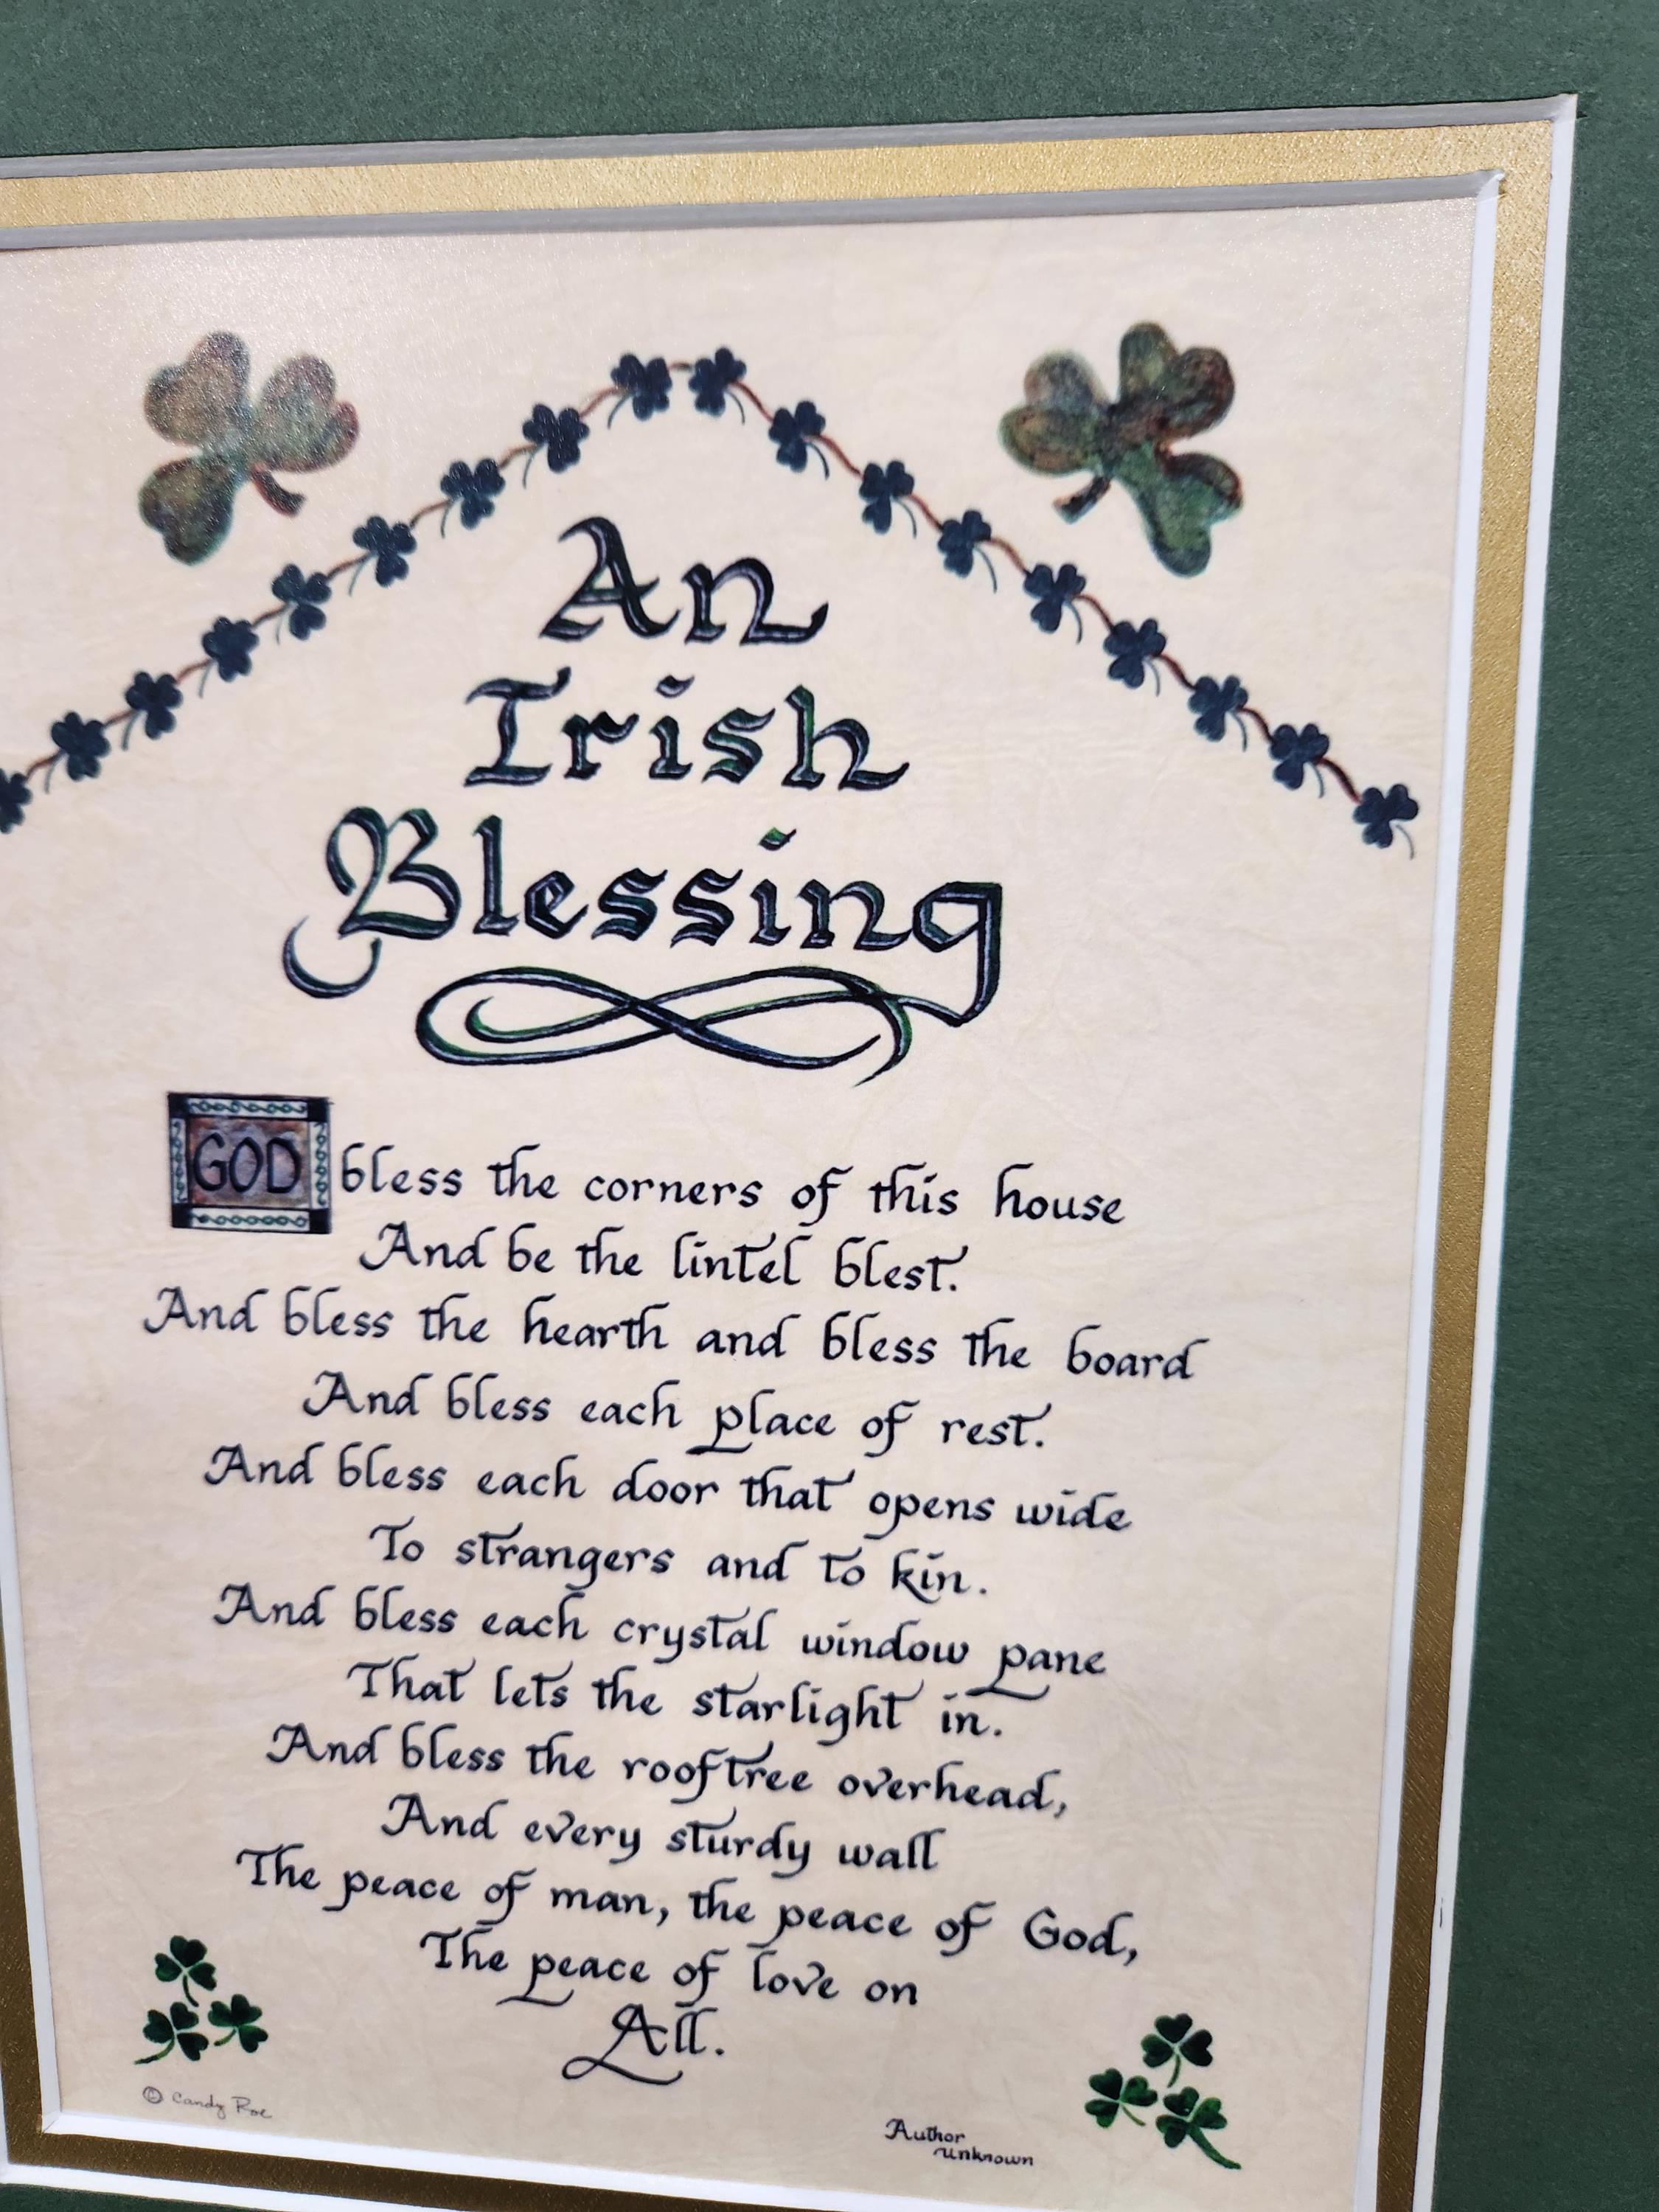 An
Irish
Blessing
GOD bless the corners of this house
And be the lintel blest.
And bless the hearth and bless the board
And bless each place of rest.
And bless each door that opens wide
To strangers and to kin.
And bless each crystal window pane
That lets the starlight in.
And bless the rooftree overhead,
And every sturdy wall
The peace of man, the peace of God,
The peace of love on
All.
© Candy Roe
Author
unknown